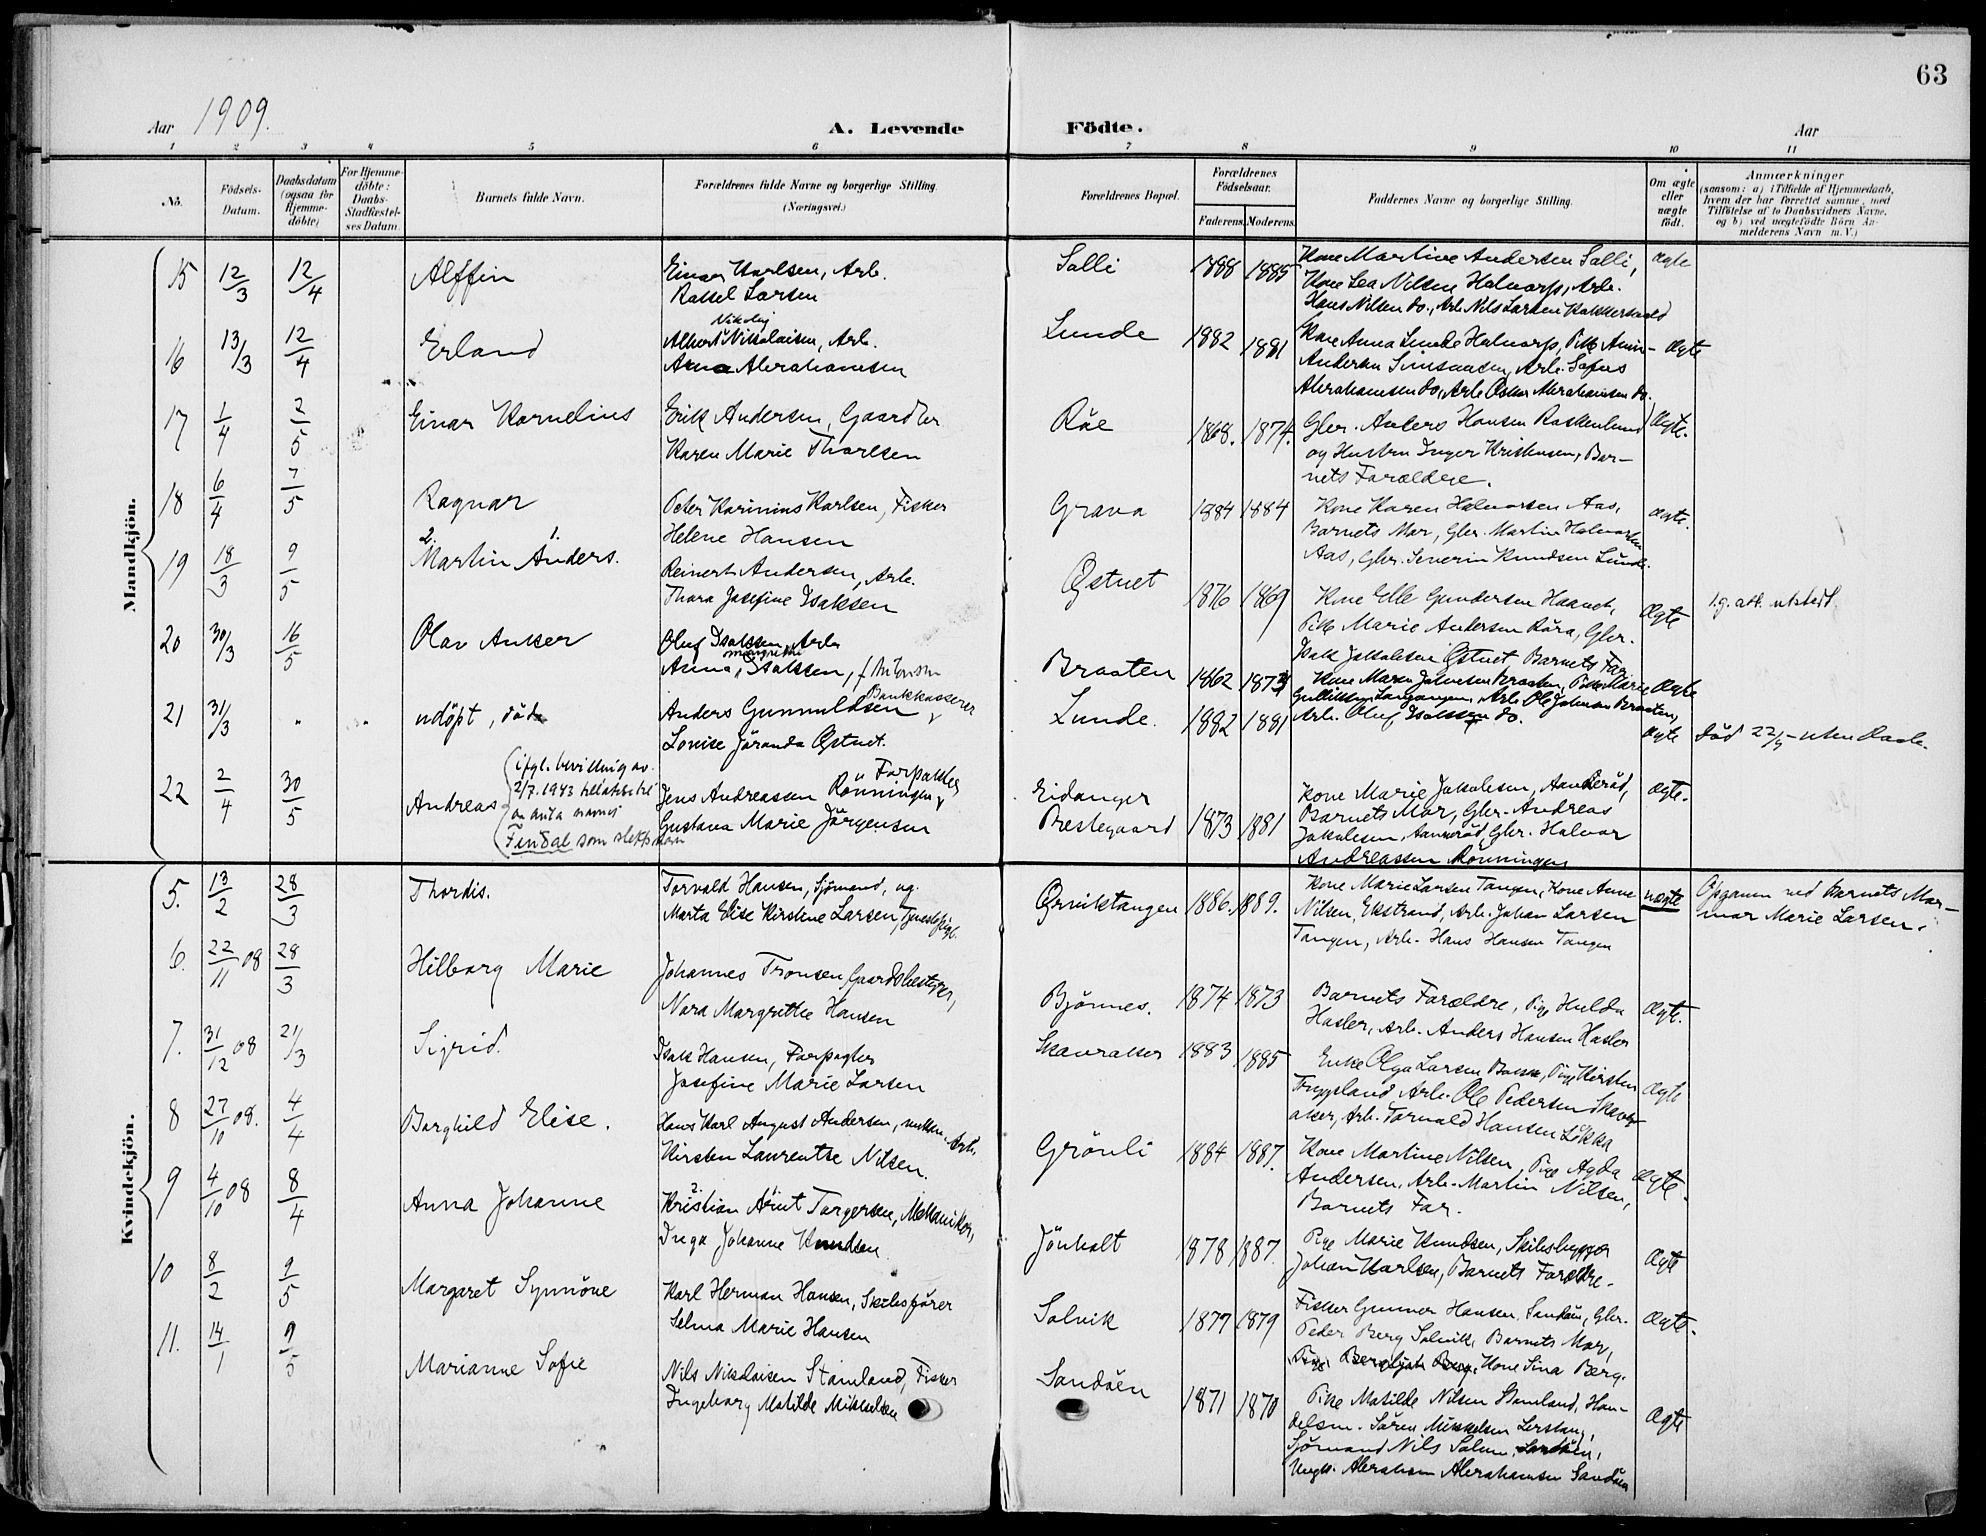 63
Aar 1909.
A. Levende Födte.
Aar
1 2 3 4 5 6 7 8 9 10 11
No.
Födsels-Datum.
Daabsdatum (ogsaa for Hjemme-döbte)
For Hjemme-döbte: Daabs-Stadfæstel-ses Datum.
Barnets fulde Navn.
Forældrenes fulde Navne og borgerlige Stilling.
(Næringsvei.)
Forældrenes Bopæl.
Forældrenes Födselsaar.
Faderens. Moderens.
Faddernes Navne og borgerlige Stilling.
Om ægte eller uægte födt.
Anmærkninger
(saasom: a) i Tilfælde af Hjemmedaab,
hvem der har forrettet samme, med
Tilföielse af to Daabsvidners Navne,
og b) ved uægtefödte Börn An-
melderens Navn m. V.)
Mandkjön.
15 12/3 12/4 Alffin
Einar Karlsen, Arb.
Rakel Larsen
Salli 1888 1885
Kone Martine Andersen Salli,
Kone Lea Nilsen Halvarp, Arb.
Hans Nilsen do., Arb. Nils Larsen
ægte
16 13/3 12/4 Erland
Nikolaj
Albert Nikolaisen, Arb.
Anna Abrahamsen
Lunde 1882 1881
Kone Anna Lunde Halvarp, Pike
Andersen Arb.
Abrahamsen do., Arb. Oskar Abrahamsen do.
Ægte
17 1/4 2/5 Einar Kornelius
Erik Andersen, Gaardbr
Karen Marie Thorsen
Räe 1868. 1874.
Gbr. Anders Hansen
og Hustru Inger Kristensen, Bar-
nets Forældre.
Ægte.
18 6/4 7/5 Ragnar
Peter Karinius Karlsen, Fisker
Helene Hansen
Grava 1884 1884
Kone Karen Halvorsen Aas,
Barnets Mor, Gbr. Martin Halvorsen
Aas, Gbr. Severin Knudsen Lunde.
Ægte.
19 18/3 9/5 2. Martin 1. Anders.
Reinert Andersen, Arb.
Thora Josefine Isaksen
Østvet 1876 1869
Kone Elle Gundersen
Pike Marie Andersen Röra, Gbr.
Isak Jakobsen Østvet, Barnets Far
Ægte
1.g. att. utstedt.
20 30/3 16/5 Olav Anker
Oluf Isaksen, Arb
Margrethe
Anna Isaksen,
Braaten 1862 1873
Kone Maren Johnsen Braaten, Pike Marie
Gulliksen Langangen, Arb. Ole Johnsen Braaten,
Arb. Oluf Isaksen do.
Ægte
21 31/3 " " udöpt, död
Bankkasserer
Anders Gunnuldsen
Lovise Jöranda Østvet.
Lunde. 1882 1881
Ægte
Död 22/4 uten Daab.
22 2/4 30/5 Andreas
ifgl. bevillning av
2/7.1943 tillatelse til
aa anta navnet
Findal som slektsnavn
Forpakter
Jens Andreassen Rönningen,
Gustava Marie Jörgensen
Eidanger
Prestegaard 1873 1881
Kone Marie Jakobsen,
Barnets Mor, Gbr. Andreas
Jakobsen, Gbr. Halvor
Andreassen Rönningen
Ægte.
Kvindekjön.
5. 13/2 28/3 Thordis.
Torvald Hansen, Sjömand, ug.
Marta Elise Kirstine Larsen, Tjenestepige.
Ørviktangen 1886. 1889.
Kone Marie Larsen Tangen, Kone Anne
Nilsen, Ekstrand, Arb. Johan Larsen
Tangen, Arb. Hans Hansen Tangen
uægte
Opgaven ved Barnets Mor-
mor Marie Larsen.
6. 22/11 08 28/3 Hilborg Marie
Johannes Tronsen, Gaardsbestyrer,
Nora Margrethe Hansen
Bjönnes. 1874 1873
Barnets Forældre, Pige Hulda
Hasler, Arb. Anders Hansen Hasler
Ægte.
7. 31/12 08 21/3 Sigrid.
Isak Hansen, Forpagter
Josefine Marie Larsen
Skavraker 1883 1885
Enke Olga Larsen Pige Kirsten
Arb. Ole Pedersen Skavr-
aker, Arb. Torvald Hansen Lökka
Ægte
8 27/10 08. 4/4 Borghild Elise.
Hans Karl August Andersen, Arb.
Kirsten Laurentse Nilsen.
Grönli 1884 1887.
Kone Martine Nilsen, Pige Agda
Andersen, Arb. Martin Nilsen,
Barnets Far.
Ægte.
9 4/10 08 8/4 Anna Johanne
2. Kristian 1. Arnt Torgersen, Mekaniker,
Inga Johanne Knudsen
Jönholt 1878 1887.
Pige Marie Knudsen, Skibsbygger
Johan Karlsen, Barnets Forældre.
Ægte
10 8/2 9/5 Margaret Synnöve
Karl Herman Hansen, Skibsförer
Selma Marie Hansen
Solvik 1877 1879
Fisker Gunnar Hansen Sandöen, Gbr.
Peder Berg Solvik, Barnets Mor,
Kone Sina Berg.
Ægte.
11. 14/1 9/5 Marianne Sofie
Nils Nikolaisen Stamland, Fisker
Ingeborg Matilde Mikkelsen
Sandöen 1871 1870
Pike Matilde Nilsen Stamland, Han-
delsm. Sören Mikkelsen Lerstang,
Sjömand Nils Salum, Sandöen,
Ungk. Abraham Abrahamsen Sandöen
Ægte